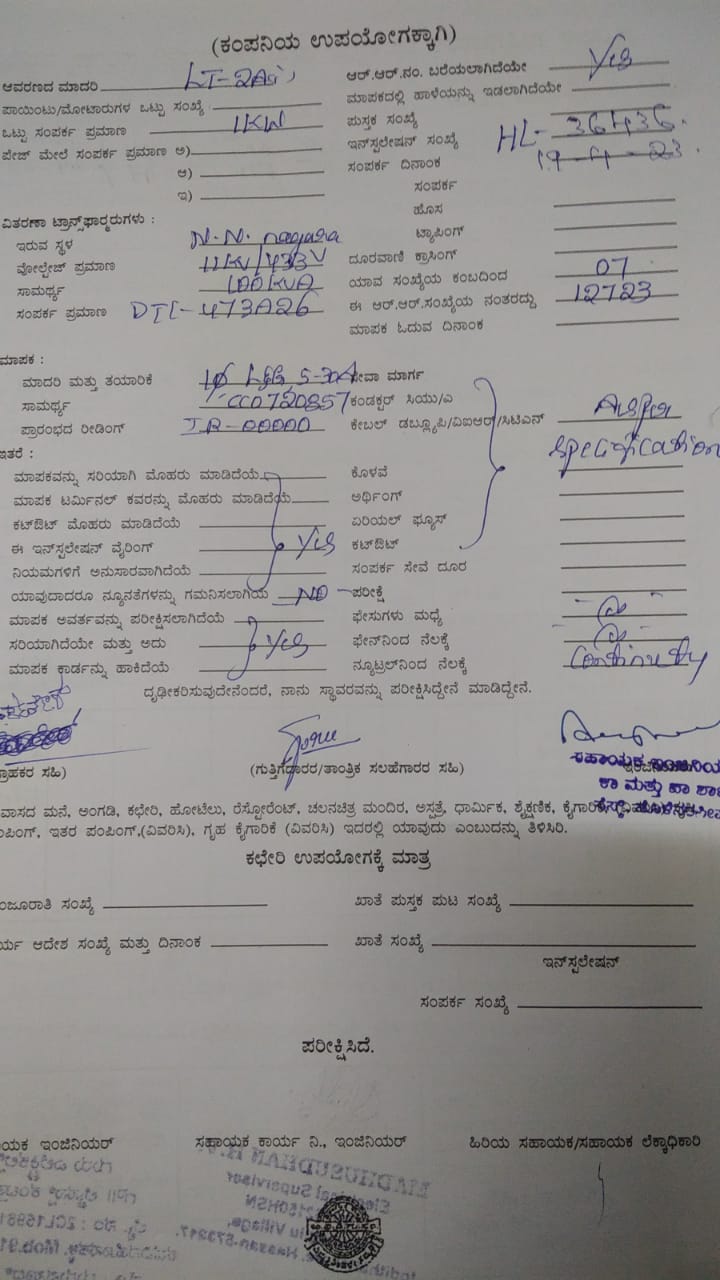 (ಕಂಪನಿಯ ಉಪಯೋಗಕ್ಕಾಗಿ)
ಆವರಣದ ಮಾದರಿ LT-2A
ಆರ್.ಆರ್.ನಂ. ಬರೆಯಲಾಗಿದೆಯೇ Yes
ಪಾಯಿಂಟು/ಮೋಟಾರುಗಳ ಒಟ್ಟು ಸಂಖ್ಯೆ
ಮಾಪಕದಲ್ಲಿ ಹಾಳೆಯನ್ನು ಇಡಲಾಗಿದೆಯೇ
ಒಟ್ಟು ಸಂಪರ್ಕ ಪ್ರಮಾಣ 1KW
ಪುಸ್ತಕ ಸಂಖ್ಯೆ
ಪೇಜ್ ಮೇಲೆ ಸಂಪರ್ಕ ಪ್ರಮಾಣ ಅ)
ಇನ್‌ಸ್ಟಲೇಷನ್ ಸಂಖ್ಯೆ HL-36436.
ಆ)
ಸಂಪರ್ಕ ದಿನಾಂಕ 19-4-23.
ಇ)
ಸಂಪರ್ಕ
ಹೊಸ
ವಿತರಣಾ ಟ್ರಾನ್ಸ್‌ಫಾರ್ಮರುಗಳು :
ಟ್ಯಾಪಿಂಗ್
ಇರುವ ಸ್ಥಳ N.N. nagara
ದೂರವಾಣಿ ಕ್ರಾಸಿಂಗ್
ವೋಲ್ಟೇಜ್ ಪ್ರಮಾಣ 11KV/433V
ಯಾವ ಸಂಖ್ಯೆಯ ಕಂಬದಿಂದ 07
ಸಾಮರ್ಥ್ಯ 100KVA
ಈ ಆರ್.ಆರ್.ಸಂಖ್ಯೆಯ ನಂತರದ್ದು 12723
ಸಂಪರ್ಕ ಪ್ರಮಾಣ DTC-473A26
ಮಾಪಕ ಓದುವ ದಿನಾಂಕ
ಮಾಪಕ :
ಮಾದರಿ ಮತ್ತು ತಯಾರಿಕೆ 1φ L&G 5-30A
ಸೇವಾ ಮಾರ್ಗ
ಸಾಮರ್ಥ್ಯ CC0720857
ಕಂಡಕ್ಟರ್ ಸಿಯು/ಎ
ಪ್ರಾರಂಭದ ರೀಡಿಂಗ್ IR-00000
ಕೇಬಲ್ ಡಬ್ಲ್ಯೂಪಿ/ವಿಐಆರ್/ಸಿಟಿಎನ್ As per
specification
ಇತರೆ :
ಮಾಪಕವನ್ನು ಸರಿಯಾಗಿ ಮೊಹರು ಮಾಡಿದೆಯೆ
ಕೊಳವೆ
ಮಾಪಕ ಟರ್ಮಿನಲ್ ಕವರನ್ನು ಮೊಹರು ಮಾಡಿದೆಯೆ
ಅರ್ಥಿಂಗ್
ಕಟ್‌ಔಟ್ ಮೊಹರು ಮಾಡಿದೆಯೆ
ಏರಿಯಲ್ ಫ್ಯೂಸ್
ಈ ಇನ್‌ಸ್ಟಲೇಷನ್ ವೈರಿಂಗ್ Yes
ಕಟ್‌ಔಟ್
ನಿಯಮಗಳಿಗೆ ಅನುಸಾರವಾಗಿದೆಯೆ
ಸಂಪರ್ಕ ಸೇವೆ ದೂರ
ಯಾವುದಾದರೂ ನ್ಯೂನತೆಗಳನ್ನು ಗಮನಿಸಲಾಗಿಯೆ NO
ಪರೀಕ್ಷೆ
ಮಾಪಕ ಅವರ್ತವನ್ನು ಪರೀಕ್ಷಿಸಲಾಗಿದೆಯೆ
ಫೇಸುಗಳು ಮಧ್ಯೆ
ಸರಿಯಾಗಿದೆಯೇ ಮತ್ತು ಅದು Yes
ಫೇಸ್‌ನಿಂದ ನೆಲಕ್ಕೆ
ಮಾಪಕ ಕಾರ್ಡನ್ನು ಹಾಕಿದೆಯೆ
ನ್ಯೂಟ್ರಲ್‌ನಿಂದ ನೆಲಕ್ಕೆ Continuity
ದೃಢೀಕರಿಸುವುದೇನೆಂದರೆ, ನಾನು ಸ್ಥಾವರವನ್ನು ಪರೀಕ್ಷಿಸಿದ್ದೇನೆ ಮಾಡಿದ್ದೇನೆ.
ಗ್ರಾಹಕರ ಸಹಿ)
(ಗುತ್ತಿಗೆದಾರರ/ತಾಂತ್ರಿಕ ಸಲಹೆಗಾರರ ಸಹಿ)
ವಾಸದ ಮನೆ, ಅಂಗಡಿ, ಕಛೇರಿ, ಹೋಟೆಲು, ರೆಸ್ಟೋರೆಂಟ್, ಚಲನಚಿತ್ರ ಮಂದಿರ, ಅಸ್ಪತ್ರೆ, ಧಾರ್ಮಿಕ, ಶೈಕ್ಷಣಿಕ, ಕೈಗಾರಿಕೆ,
ಪಂಪಿಂಗ್, ಇತರ ಪಂಪಿಂಗ್,(ವಿವರಿಸಿ), ಗೃಹ ಕೈಗಾರಿಕೆ (ವಿವರಿಸಿ) ಇದರಲ್ಲಿ ಯಾವುದು ಎಂಬುದನ್ನು ತಿಳಿಸಿರಿ.
ಕಛೇರಿ ಉಪಯೋಗಕ್ಕೆ ಮಾತ್ರ
ಮಂಜೂರಾತಿ ಸಂಖ್ಯೆ
ಖಾತೆ ಪುಸ್ತಕ ಪುಟ ಸಂಖ್ಯೆ
ಕಾರ್ಯ ಆದೇಶ ಸಂಖ್ಯೆ ಮತ್ತು ದಿನಾಂಕ
ಖಾತೆ ಸಂಖ್ಯೆ
ಇನ್‌ಸ್ಟಲೇಷನ್
ಸಂಪರ್ಕ ಸಂಖ್ಯೆ
ಪರೀಕ್ಷಿಸಿದೆ.
ಸಹಾಯಕ ಇಂಜಿನಿಯರ್
ಸಹಾಯಕ ಕಾರ್ಯ ನಿ., ಇಂಜಿನಿಯರ್
ಹಿರಿಯ ಸಹಾಯಕ/ಸಹಾಯಕ ಲೆಕ್ಕಾಧಿಕಾರಿ